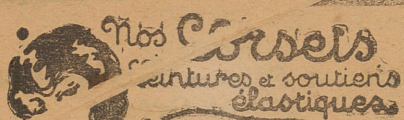 Nos Corsets
Ceintures et soutiens
élastiques